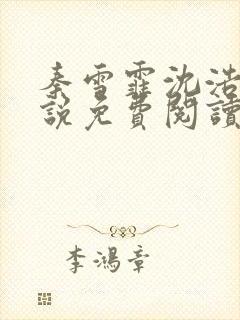 秦雪霏沈浩
說免費閱讀
李鴻章